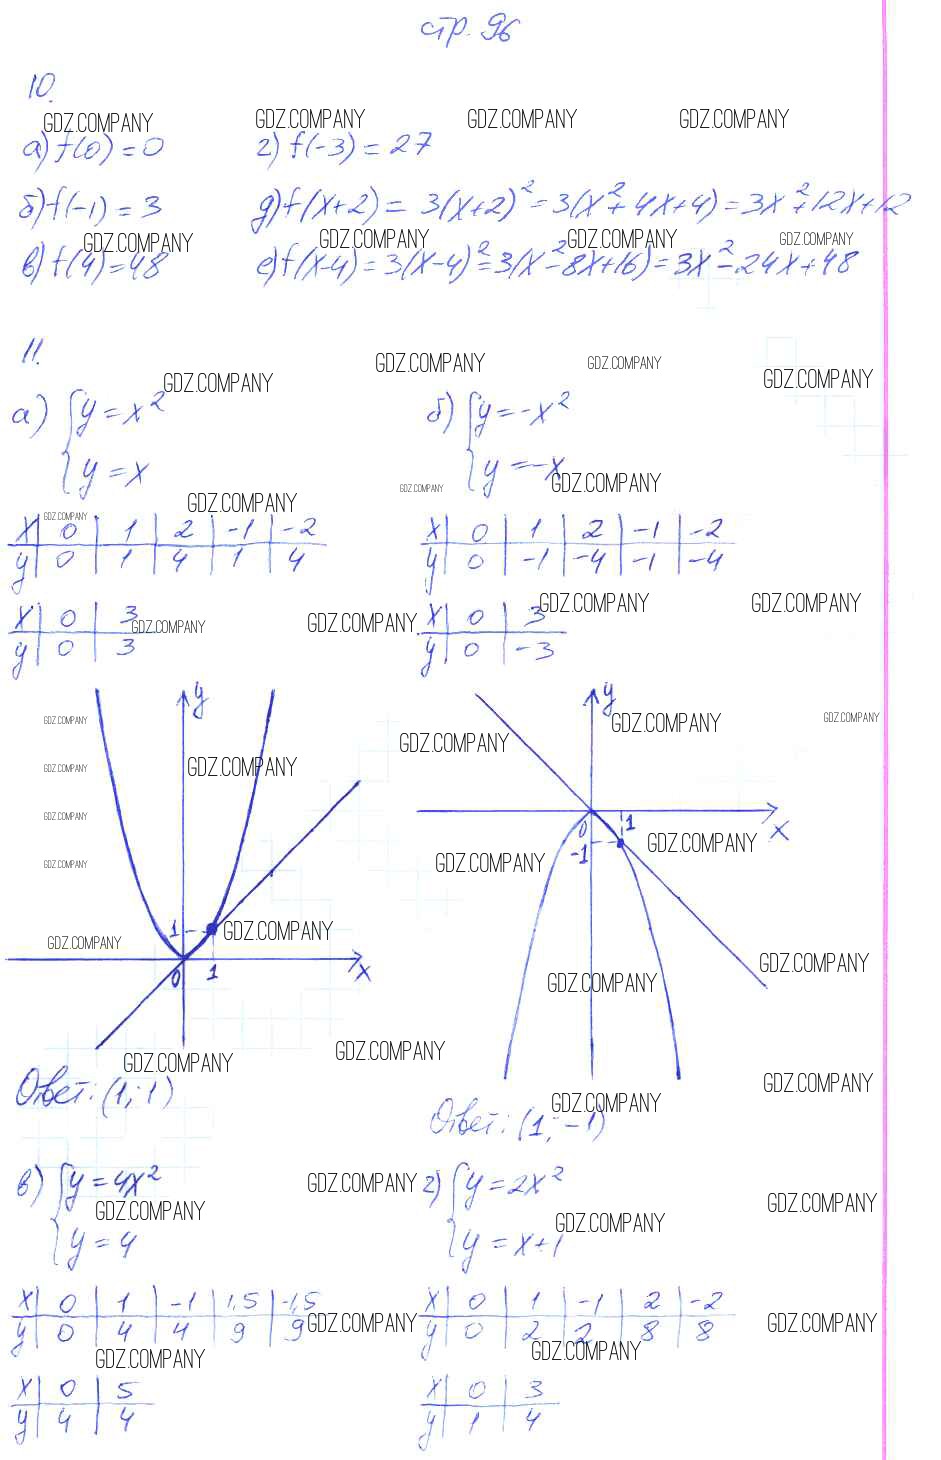 стр. 96
10.
GDZ.COMPANY GDZ.COMPANY GDZ.COMPANY GDZ.COMPANY
а) f(0) = 0 г) f(-3) = 27
б) f(-1) = 3 д) f(x+2) = 3(x+2)² = 3(x²+4x+4) = 3x²+12x+12
GDZ.COMPANY GDZ.COMPANY GDZ.COMPANY GDZ.COMPANY
в) f(4) = 48 е) f(x-4) = 3(x-4)² = 3(x²-8x+16) = 3x²-24x+48
11.
GDZ.COMPANY GDZ.COMPANY GDZ.COMPANY GDZ.COMPANY
а) { y = x² б) { y = -x²
y = x y = -x
GDZ.COMPANY GDZ.COMPANY GDZ.COMPANY
GDZ.COMPANY
x 0 1 2 -1 -2 x 0 1 2 -1 -2
y 0 1 4 1 4 y 0 -1 -4 -1 -4
GDZ.COMPANY GDZ.COMPANY
x 0 3 x 0 3
GDZ.COMPANY GDZ.COMPANY
y 0 3 y 0 -3
y y
GDZ.COMPANY GDZ.COMPANY GDZ.COMPANY
GDZ.COMPANY
GDZ.COMPANY GDZ.COMPANY
GDZ.COMPANY
0 1 x
-1 GDZ.COMPANY
GDZ.COMPANY GDZ.COMPANY
1 GDZ.COMPANY
GDZ.COMPANY GDZ.COMPANY
0 1 x
GDZ.COMPANY
GDZ.COMPANY GDZ.COMPANY
GDZ.COMPANY
Ответ: (1; 1) GDZ.COMPANY
Ответ: (1; -1)
в) { y = 4x² GDZ.COMPANY г) { y = 2x²
GDZ.COMPANY GDZ.COMPANY GDZ.COMPANY
y = 4 y = x+1
x 0 1 -1 1,5 -1,5 x 0 1 -1 2 -2
GDZ.COMPANY GDZ.COMPANY
y 0 4 4 9 9 y 0 2 2 8 8
GDZ.COMPANY GDZ.COMPANY
x 0 5 x 0 3
y 4 4 y 1 4